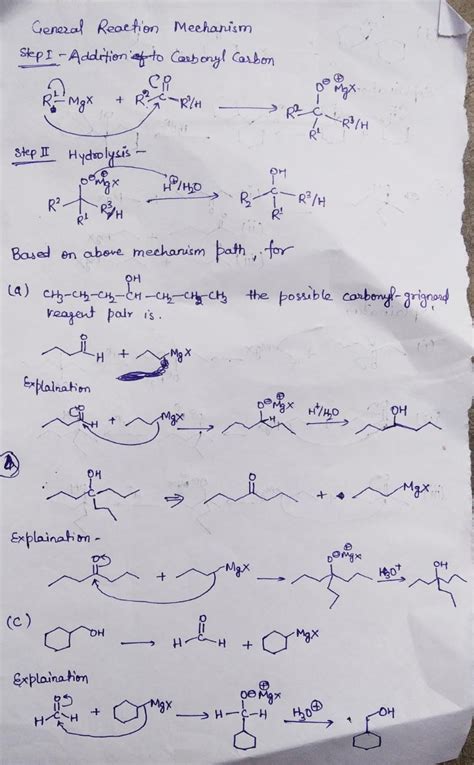 General Reaction Mechanism
Step I - Addition to Carbonyl Carbon
R¹-MgX + R²-C(=O)-R³/H → R²-C(O⊖ ⊕MgX)(R¹)-R³/H
Step II Hydrolysis -
R²-C(O⊖ ⊕MgX)(R¹)-R³/H H⊕/H₂O → R₂-C(OH)(R¹)-R³/H
Based on above mechanism path, for
OH
(a) CH₃-CH₂-CH₂-CH-CH₂-CH₂-CH₃ the possible carbonyl-grignard
reagent pair is.
O H + MgX
Explaination
O H + MgX → O⊖ ⊕MgX H H⁺/H₂O → OH
OH ⇒ O + MgX
Explaination -
O + MgX → O⊖ ⊕MgX H₃O⁺ → OH
(C)
OH → H-C(=O)-H + MgX
Explaination
H-C(=O)-H + MgX → H-C(O⊖ ⊕MgX)-H H₃O⊕ → OH